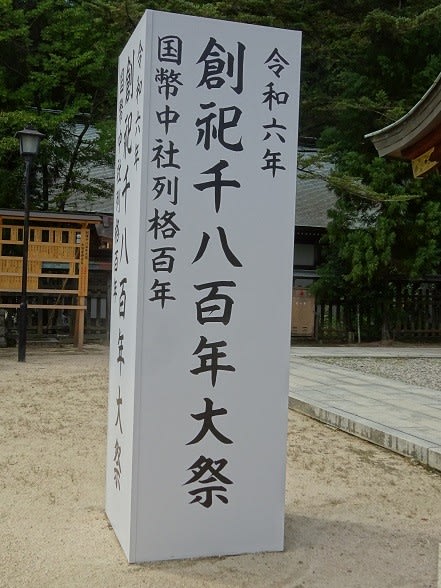 令和六年
創祀千八百年大祭
国幣中社列格百年
令和六年
創祀千八百年大祭
国幣中社列格百年